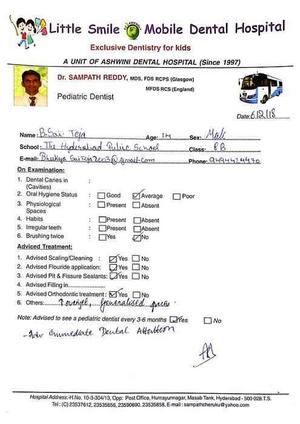 Little Smile Mobile Dental Hospital
Exclusive Dentistry for kids
A UNIT OF ASHWINI DENTAL HOSPITAL (Since 1997)
Dr. SAMPATH REDDY, MDS, FDS RCPS (Glasgow)
MFDS RCS (England)
Pediatric Dentist
Date: 6/12/18
Name: B. Sai Teja Age: 14 Sex: Male
School: The Hyderabad Public School Class:
E-mail: Phone:
On Examination:
1. Dental Caries in (Cavities) :
2. Oral Hygiene Status : Good Average Poor
3. Physiological Spaces : Present Absent
4. Habits : Present Absent
5. Irregular teeth : Present Absent
6. Brushing twice : Yes No
Adviced Treatment:
1. Advised Scaling/Cleaning : Yes No
2. Advised Flouride application: Yes No
3. Adviced Pit & Fissure Sealants: Yes No
4. Advised Filling in
5. Advised Orthodontic treatment : Yes No
6. Others: generalised
Note: Advised to see a pediatric dentist every 3-6 months Yes No
Immediate Dental Attention
Hospital Address -H.No. 10-3-304/13, Opp: Post Office, Humayunnagar, Masab Tank, Hyderabad - 500 028 T.S.
Tel: (C) 23537612, 23535656, 23590690, 23535658. E-mail : sampathcheruku@yahoo.com